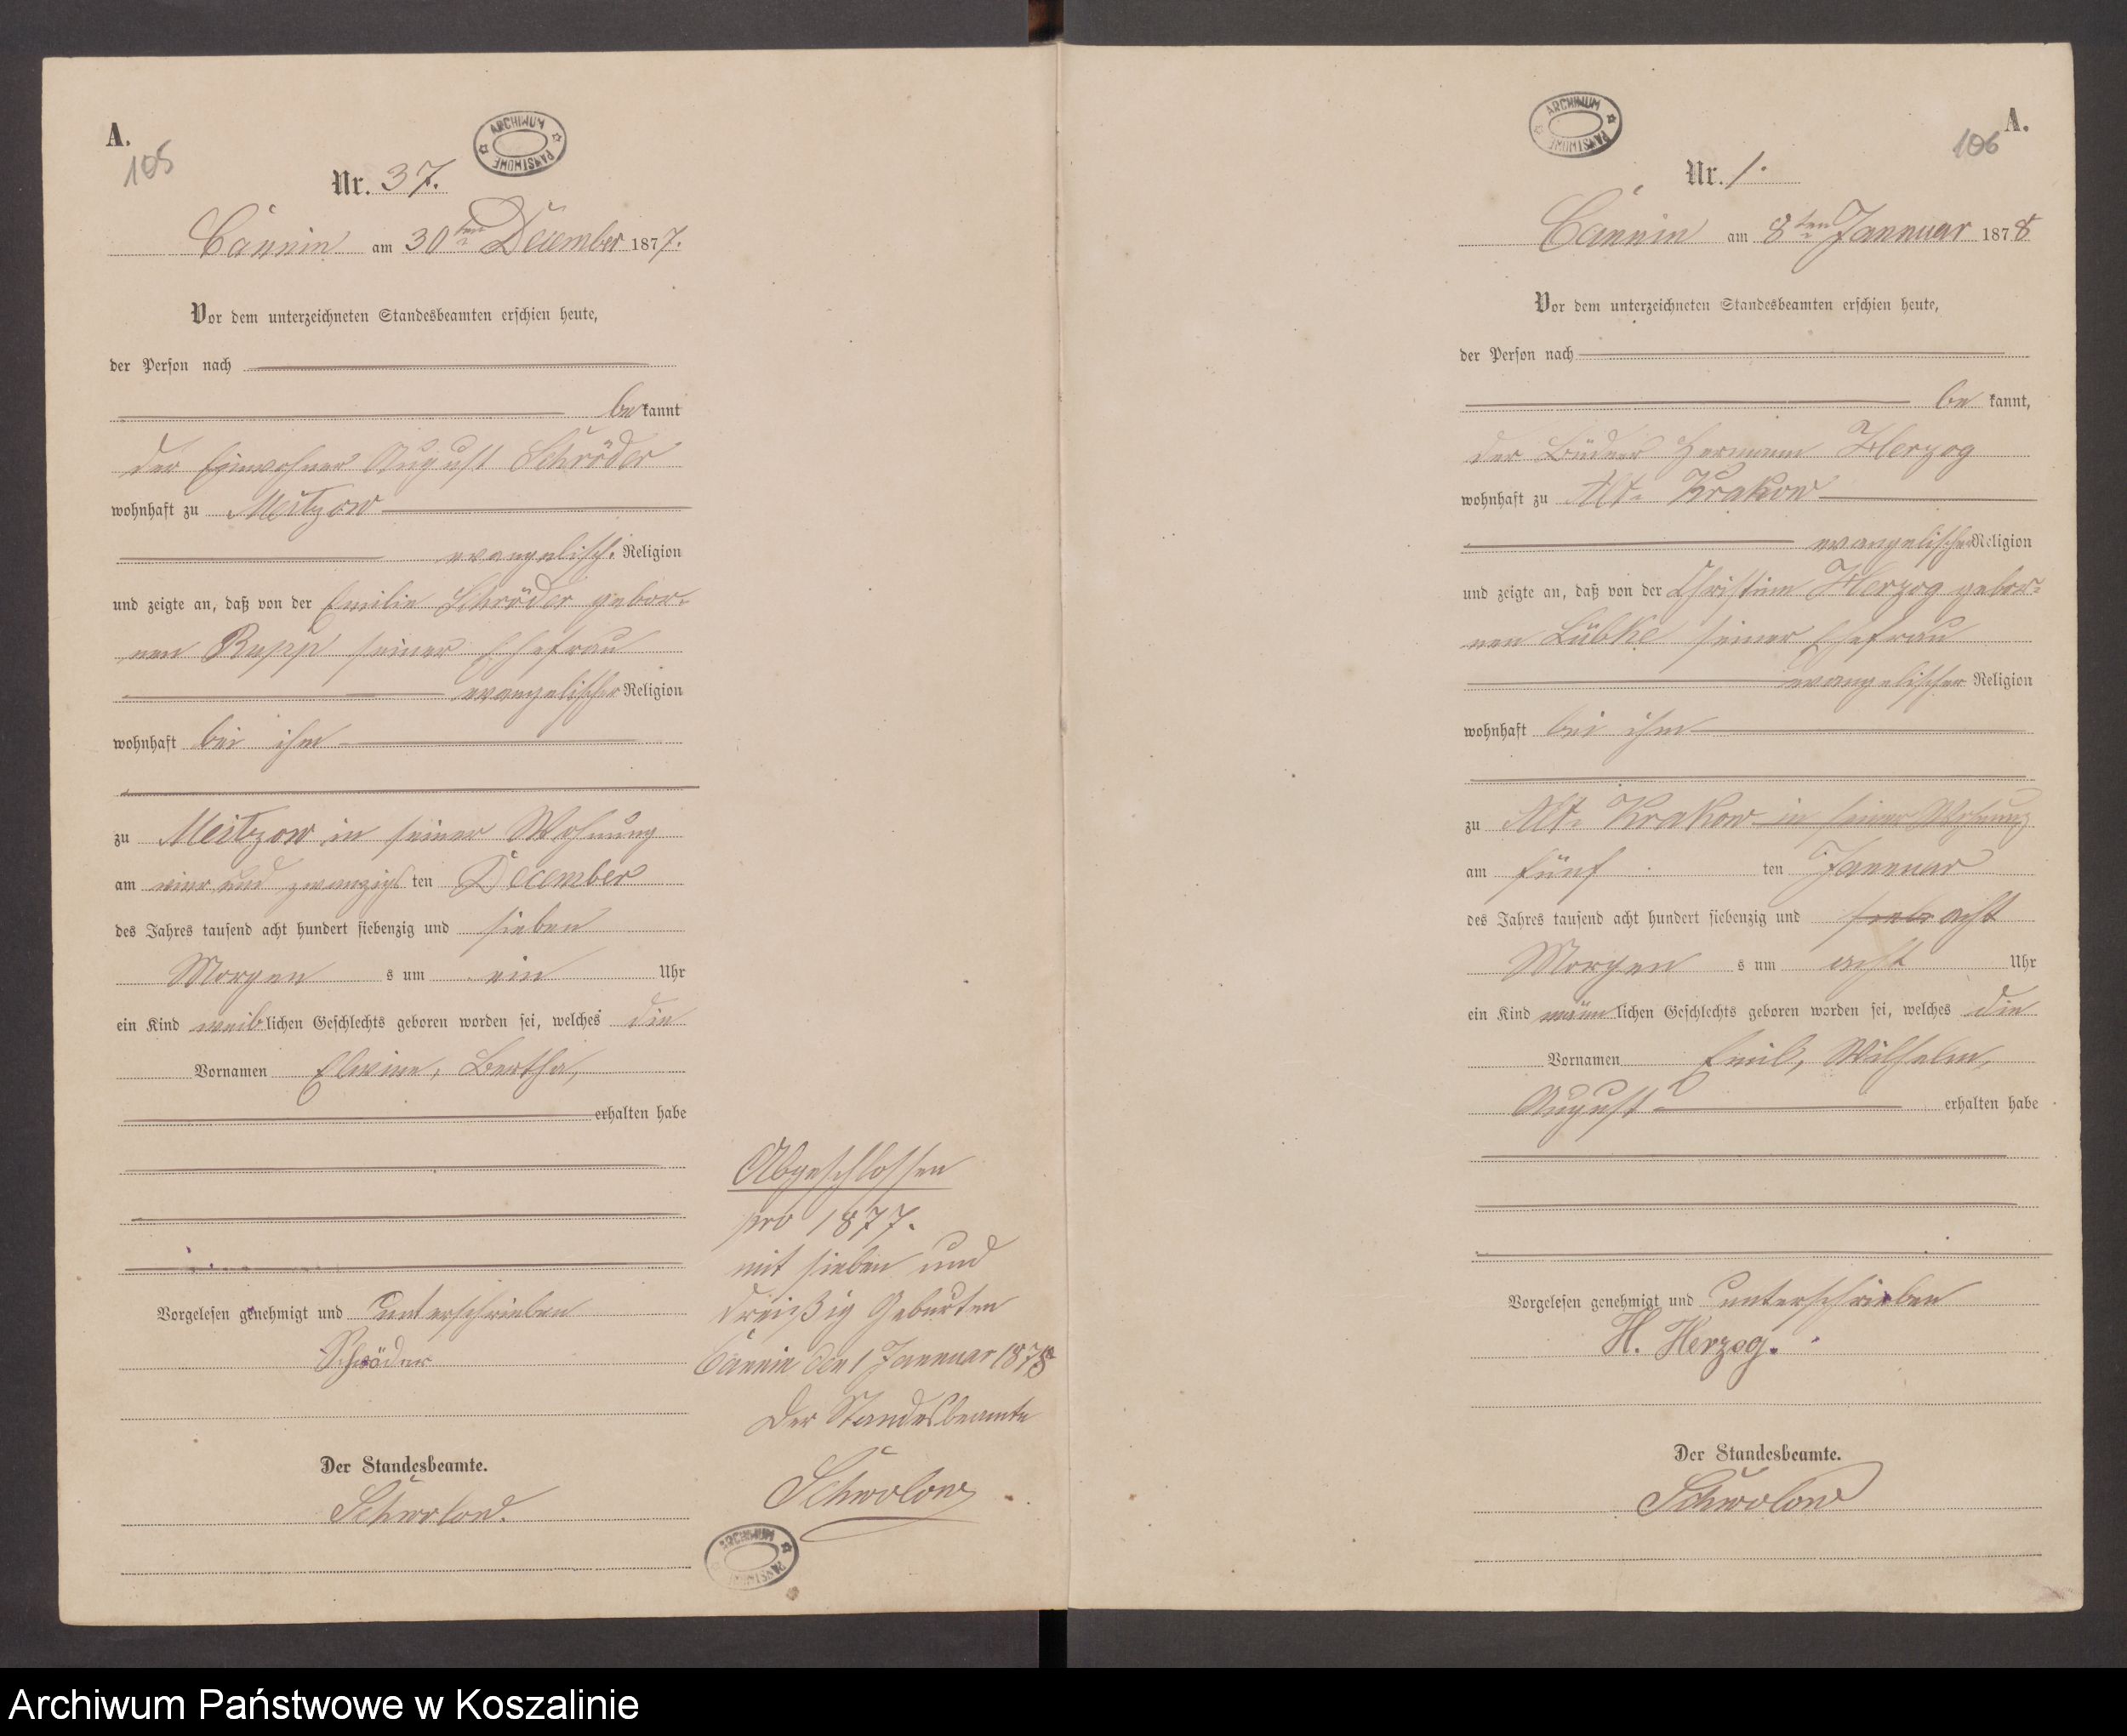 A.
105
ARCHIWUM PAŃSTWOWE
Nr. 37.
Cännin am 30ten December 1877.
Vor dem unterzeichneten Standesbeamten erschien heute,
der Person nach
be kannt
der Einwohner August Schröder
wohnhaft zu Meitzow
evangelisch. Religion
und zeigte an, daß von der Emilie Schröder gebor-
nen Rupp seiner Ehefrau
evangelischer Religion
wohnhaft bei ihm
zu Meitzow in seiner Wohnung
am vier und zwanzigs ten December
des Jahres tausend acht hundert siebenzig und sieben
Morgen s um ein Uhr
ein Kind weib lichen Geschlechts geboren worden sei, welches die
Vornamen Elwine, Bertha,
erhalten habe
Vorgelesen genehmigt und unterschrieben
Schröder
Der Standesbeamte.
Schwolow.
Abgeschlossen
pro 1877.
mit sieben und
dreißig Geburten
Cännin den 1 Jannuar 1878
Der Standesbeamte
Schwolow
ARCHIWUM PAŃSTWOWE
ARCHIWUM PAŃSTWOWE
A.
106
Nr. 1.
Cännin am 8ten Jannuar 1878
Vor dem unterzeichneten Standesbeamten erschien heute,
der Person nach
be kannt,
der Büdner Hermann Herzog
wohnhaft zu Alt. Krakow
evangelischer Religion
und zeigte an, daß von der Christine Herzog gebor-
nen Lübke seiner Ehefrau
evangelischer Religion
wohnhaft bei ihm
zu Alt. Krakow in seiner Wohnung
am fünf ten Jannuar
des Jahres tausend acht hundert siebenzig und sieb acht
Morgen s um acht Uhr
ein Kind männ lichen Geschlechts geboren worden sei, welches die
Vornamen Emil, Wilhelm,
August erhalten habe
Vorgelesen genehmigt und unterschrieben
H. Herzog.
Der Standesbeamte.
Schwolow
Archiwum Państwowe w Koszalinie